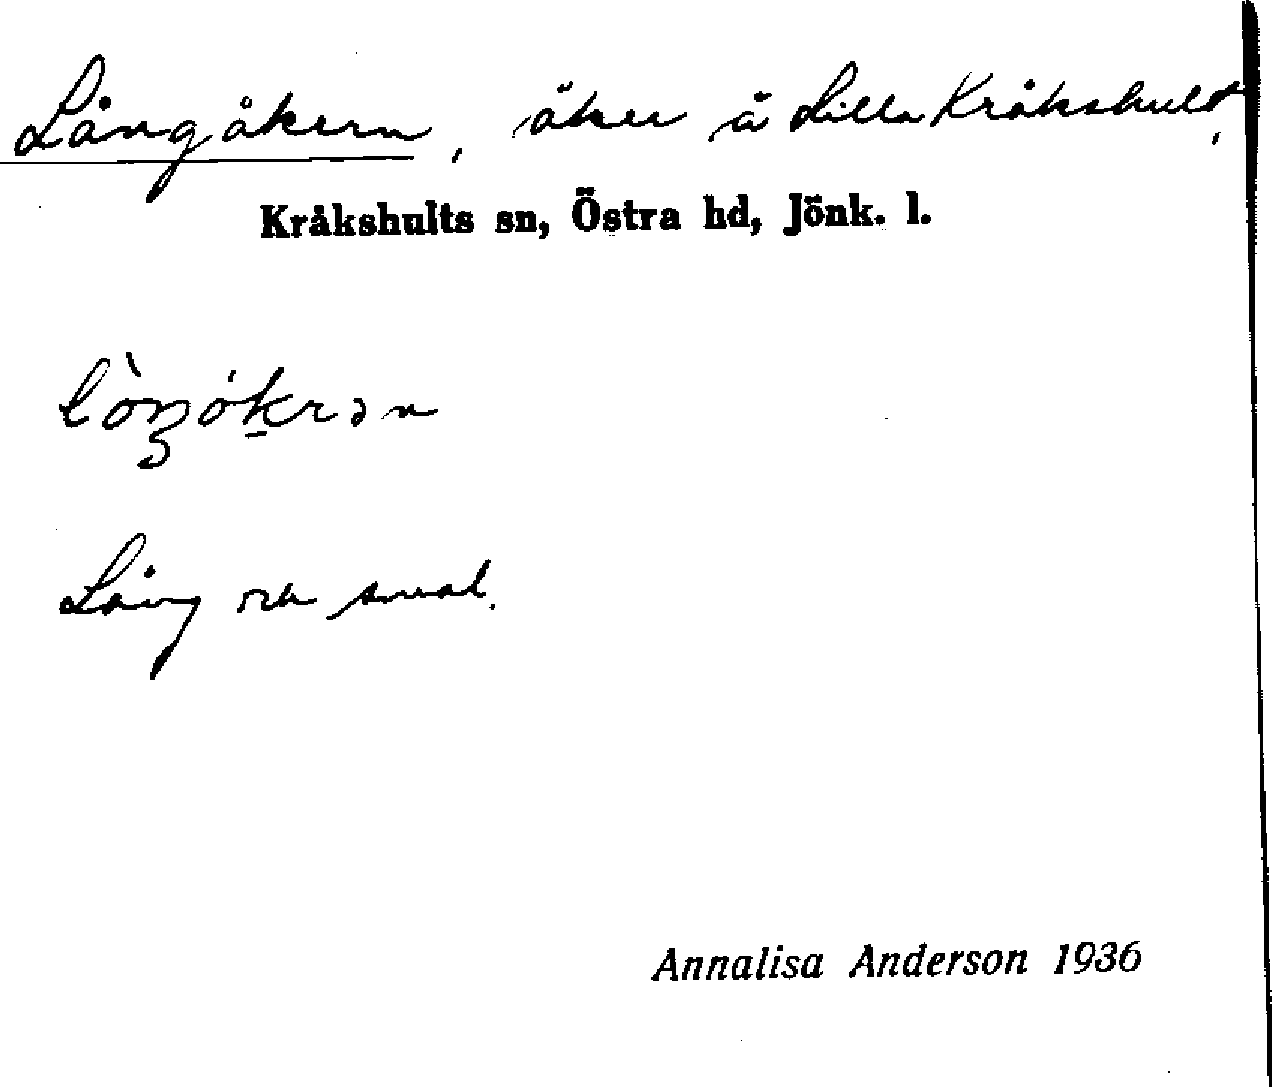 Långåkern, åker å Lilla Kråkshult,
Kråkshults sn, Östra hd, Jönk. l.
lòŋókrən
Lång och smal.
Annalisa Anderson 1936